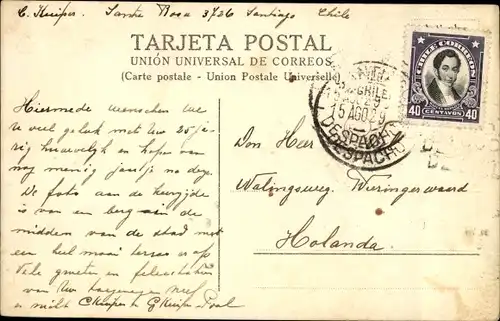 C. Kuiper. Santa Rosa 3726 Santiago Chile
TARJETA POSTAL
UNIÓN UNIVERSAL DE CORREOS
(Carte postale - Union Postale Universelle)
CHILE CORREOS
40 CENTAVOS 40
CHILE
15 AGO 29
DESPACHO
Hiermede wenschen we
u veel geluk met uw 25 ja-
rig huwelijk en hopen van
nog menig jaartje na deze.
De foto aan de keerzijde
is van een berg in de
midden van de stad met
een heel mooi terras er op
Vele groeten en felicitaties
van Uw neef
en nicht C Kuiper
Don Heer
Walingsweg. Wieringerwaard
Holanda